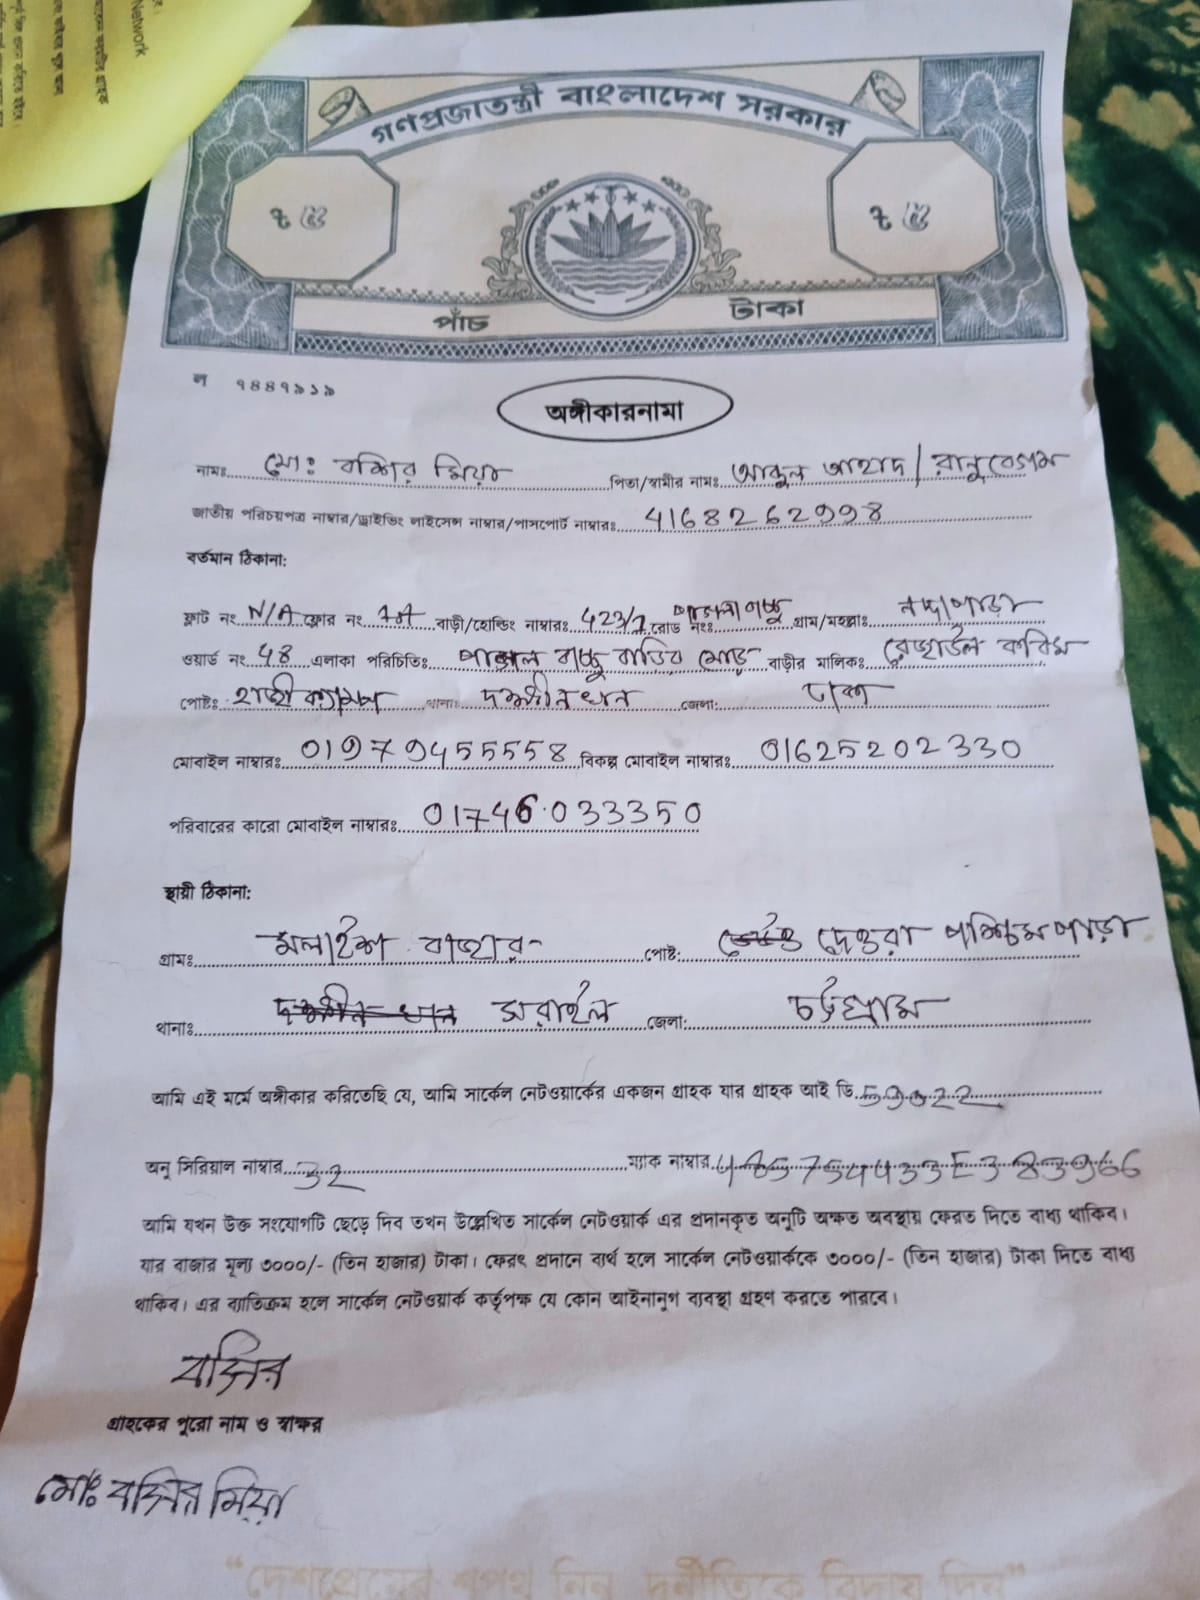 Network
গণপ্রজাতন্ত্রী বাংলাদেশ সরকার
৳ ৫ ৳ ৫
পাঁচ টাকা
ল ৭৪৪৭৯১৯
অঙ্গীকারনামা
নামঃ মোঃ বশির মিয়া পিতা/স্বামীর নামঃ আব্দুল আহাদ / রানু বেগম
জাতীয় পরিচয়পত্র নাম্বার/ড্রাইভিং লাইসেন্স নাম্বার/পাসপোর্ট নাম্বারঃ 4168262998
বর্তমান ঠিকানা:
ফ্লাট নং N/A ফ্লোর নং বাড়ী/হোল্ডিং নাম্বারঃ 423/1 রোড নংঃ গ্রাম/মহল্লাঃ নদ্দাপাড়া
ওয়ার্ড নং 48 এলাকা পরিচিতিঃ পাগল বাচ্চু বাড়ির মোড় বাড়ীর মালিকঃ রেজাউল করিম
পোষ্টঃ হাজী ক্যাম্প থানাঃ দক্ষীনখান জেলা: ঢাকা
মোবাইল নাম্বারঃ 01979455558 বিকল্প মোবাইল নাম্বারঃ 01625202330
পরিবারের কারো মোবাইল নাম্বারঃ 01746033350
স্থায়ী ঠিকানা:
গ্রামঃ মলাইশ বাজার পোষ্ট: দেওরা পশ্চিমপাড়া
থানাঃ দক্ষীন খান সরাইল জেলা: চট্টগ্রাম
আমি এই মর্মে অঙ্গীকার করিতেছি যে, আমি সার্কেল নেটওয়ার্কের একজন গ্রাহক যার গ্রাহক আই ডি
অনু সিরিয়াল নাম্বার 32 ম্যাক নাম্বার
আমি যখন উক্ত সংযোগটি ছেড়ে দিব তখন উল্লেখিত সার্কেল নেটওয়ার্ক এর প্রদানকৃত অনুটি অক্ষত অবস্থায় ফেরত দিতে বাধ্য থাকিব।
যার বাজার মূল্য ৩০০০/- (তিন হাজার) টাকা। ফেরৎ প্রদানে ব্যর্থ হলে সার্কেল নেটওয়ার্ককে ৩০০০/- (তিন হাজার) টাকা দিতে বাধ্য
থাকিব। এর ব্যতিক্রম হলে সার্কেল নেটওয়ার্ক কর্তৃপক্ষ যে কোন আইনানুগ ব্যবস্থা গ্রহণ করতে পারবে।
বসির
গ্রাহকের পুরো নাম ও স্বাক্ষর
মোঃ বসির মিয়া
“দেশপ্রেমের শপথ নিন, দুর্নীতিকে বিদায় দিন”